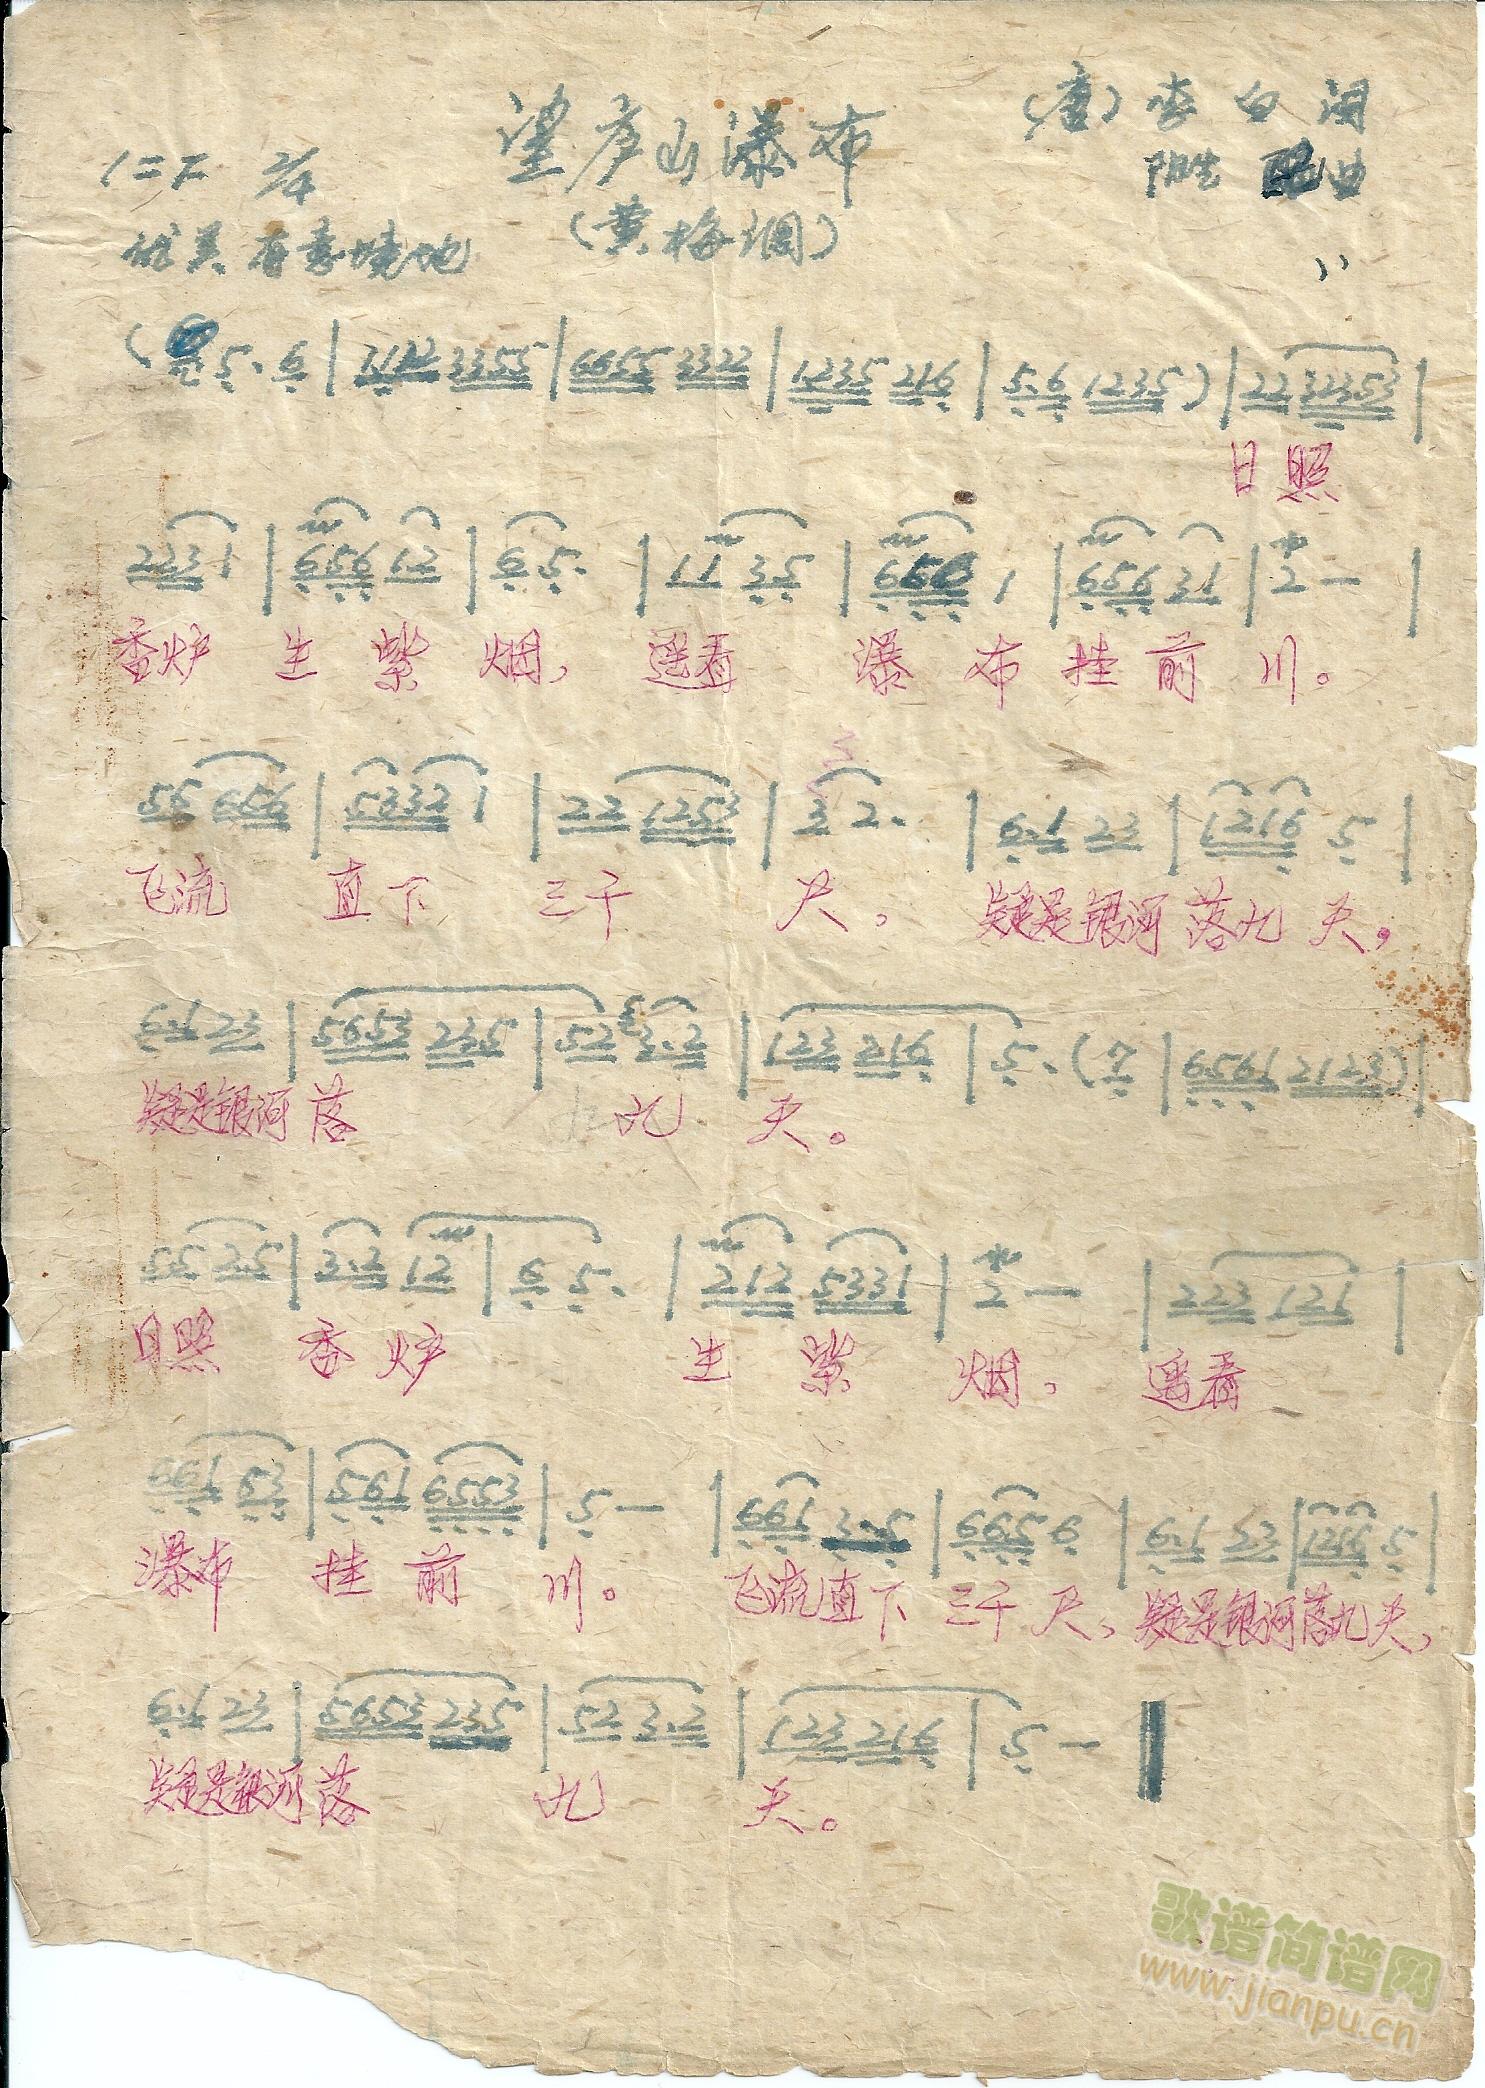 望庐山瀑布
(唐)李白词
1=F 2/4
(黄梅调)
曲
优美 有意境地
5· 6 | 3355 | 6655 3322 | 1235 216 | 5·6 1235) | 22 32353 |
日照
2231 | 656 12 | 6 5· | 11 35 | 656 1 | 656 31 | 2 — |
香炉 生 紫 烟, 遥看 瀑 布 挂 前 川。
55 656 | 5332 1 | 22 1253 | 3 2· | 6·1 23 | 1216 5 |
飞流 直下 三千 尺, 疑是银河 落九 天,
6·1 23 | 5653 235 | 52 3·2 | 123 216 | 5· (7 | 6561 2123) |
疑是银河 落 九 天。
55 2·5 | 3·2 12 | 6 5· | 212 5331 | 2 — | 223 121 |
日照 香炉 生 紫 烟, 遥看
661 53 | 561 6553 | 5 — | 661 3·5 | 665 6 | 6·1 23 | 1216 5 |
瀑布 挂 前 川。 飞流直下 三千 尺, 疑是银河落九天,
6·1 23 | 5653 235 | 52 3·2 | 123 216 | 5 — ‖
疑是银河 落 九 天。
歌谱简谱网
www.jianpu.cn